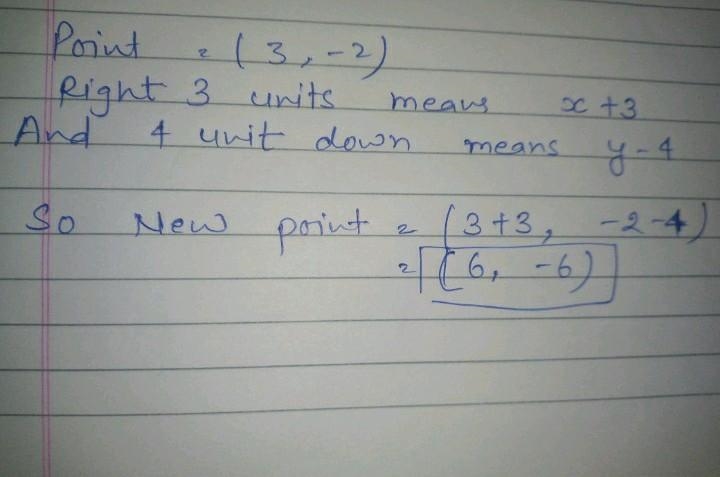 Point = (3, -2)
Right 3 units means x+3
And 4 unit down means y-4
So New point = (3+3, -2-4)
= (6, -6)